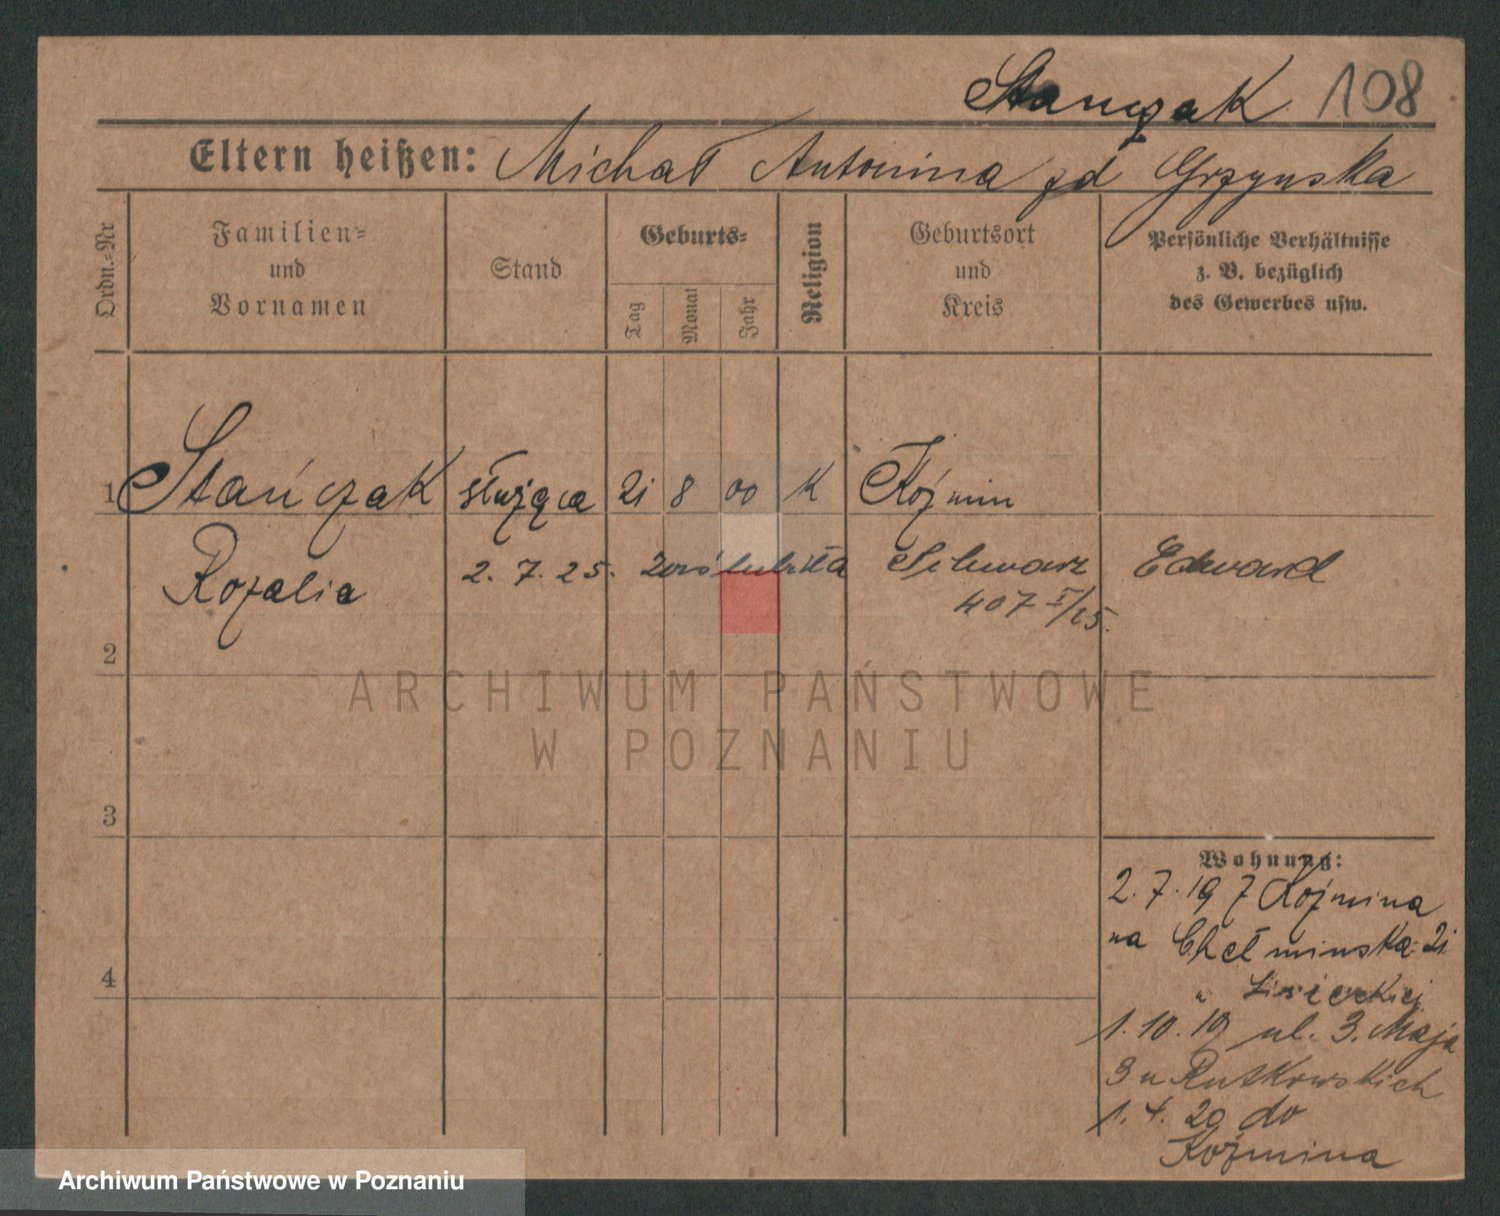 Stanczak 108
Eltern heißen: Michał Antonina zd Grzynska
Ordn.-Nr
Familien-
und
Vornamen
Stand
Geburts-
Tag
Monat
Jahr
Religion
Geburtsort
und
Kreis
Persönliche Verhältnisse
z. B. bezüglich
des Gewerbes usw.
1 Stańczak służąca 21 8 00 K Koźmin
Rozalia 2. 7. 25. zaślubiła Schwarz Edward
407 I/25.
2
ARCHIWUM PAŃSTWOWE
W POZNANIU
3
Wohnung:
2. 7. 19 z Koźmina
na Chełminska 21
4
u
1. 10. 19 ul. 3. Maja
3 u Rutkowskich
1. 4. 20 do
Koźmina
Archiwum Państwowe w Poznaniu